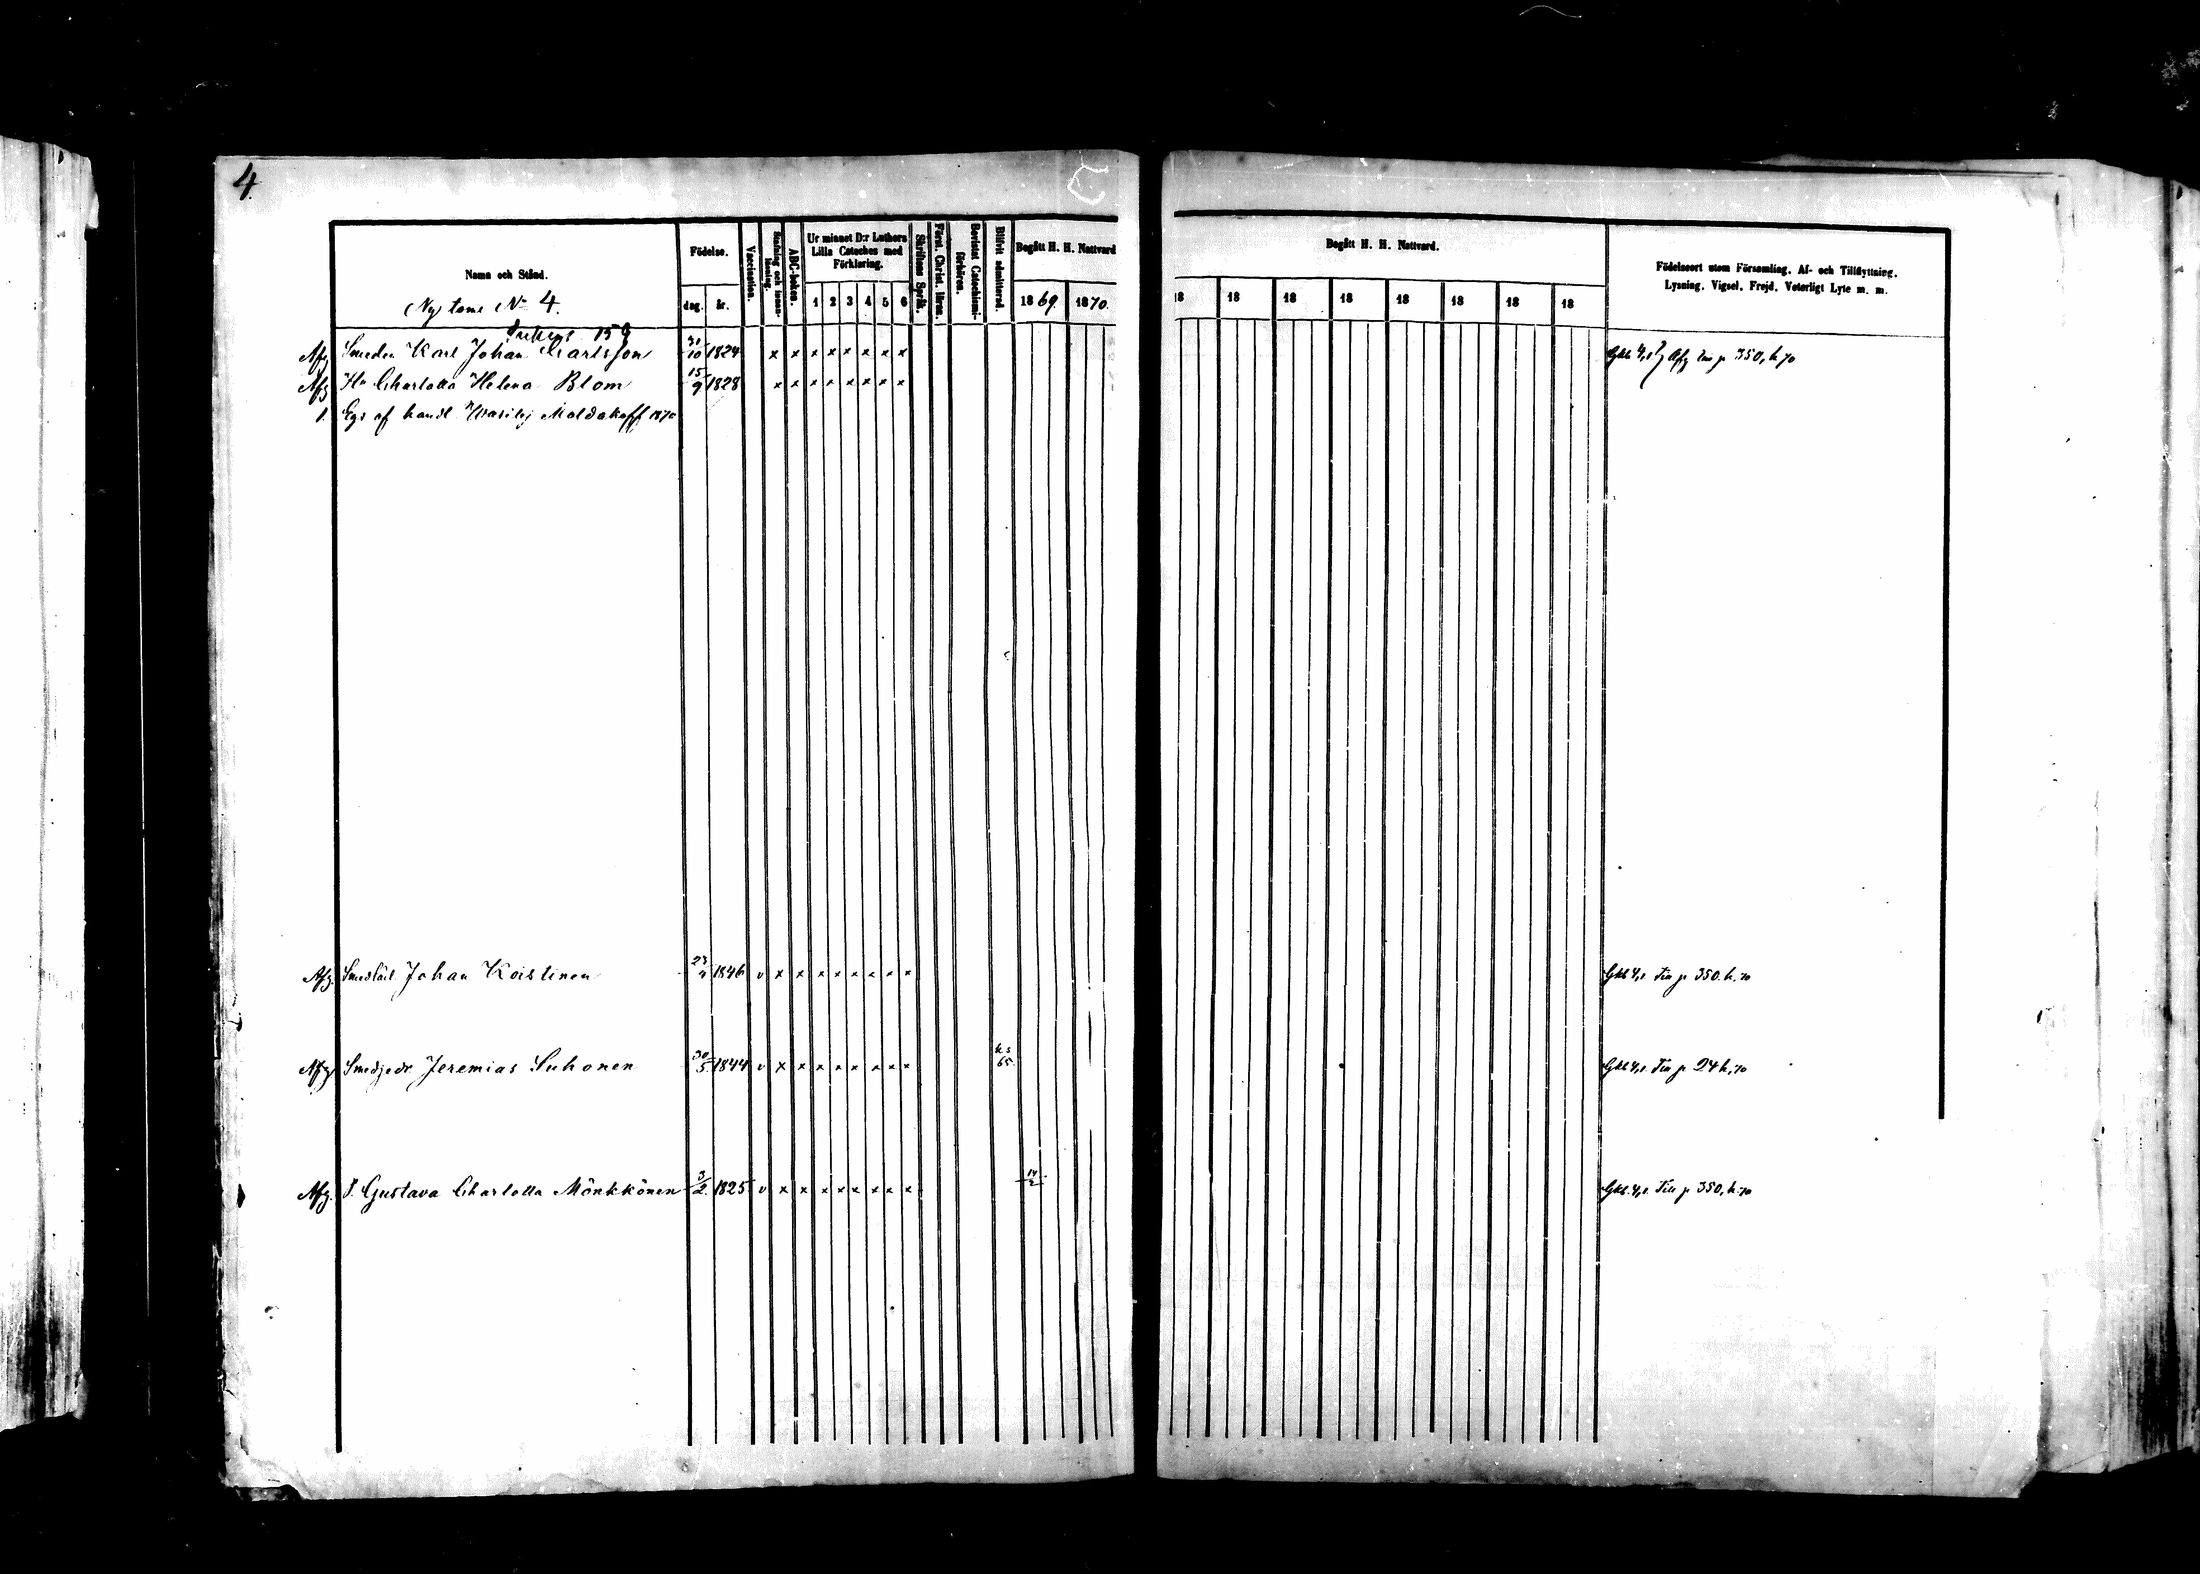 4.
Namn och Stånd.
Ny tomt No 4.
Födelse.
dag. år.
Vaccination.
Stafning och innanläsning.
ABC-boken.
Ur minnet D:r Luthers Lilla Cateches med Förklaring.
1 2 3 4 5 6
Skriftens Språk.
Förest. Christ. läran.
Bevistat Catechismiförhören.
Blifvit admitterad.
Begått H. H. Nattvard
1869 1870.
Begått H. H. Nattvard.
18 18 18 18 18 18 18 18
Födelseort utom Församling, Af- och Tillflyttning,
Lysning, Vigsel, Frejd, Veterligt Lyte m. m.
159
Afg Smeden Karl Johan Karlsson 31/10 1824 x x x x x x x x Gkb 4,1 Afg p 350, k 70
Afg Hu Charlotta Helena Blom 15/9 1828 x x x x x x x x
1. Egs af handl Wasilij Moldakoff 1870
Afg. Johan Koistinen 23/4 1846 v x x x x x x x x Gkb 4,1. p 350. k. 70
Afg Smedjedr Jeremias Suhonen 30/5 1844 v x x x x x x x x ks 65 Gkb 4,1. p 24 k, 70
Afg. P. Gustava Charlotta Mönkkönen 3/2 1825 v x x x x x x x x 14/2 Gkb. 4,1. p 350, k 70